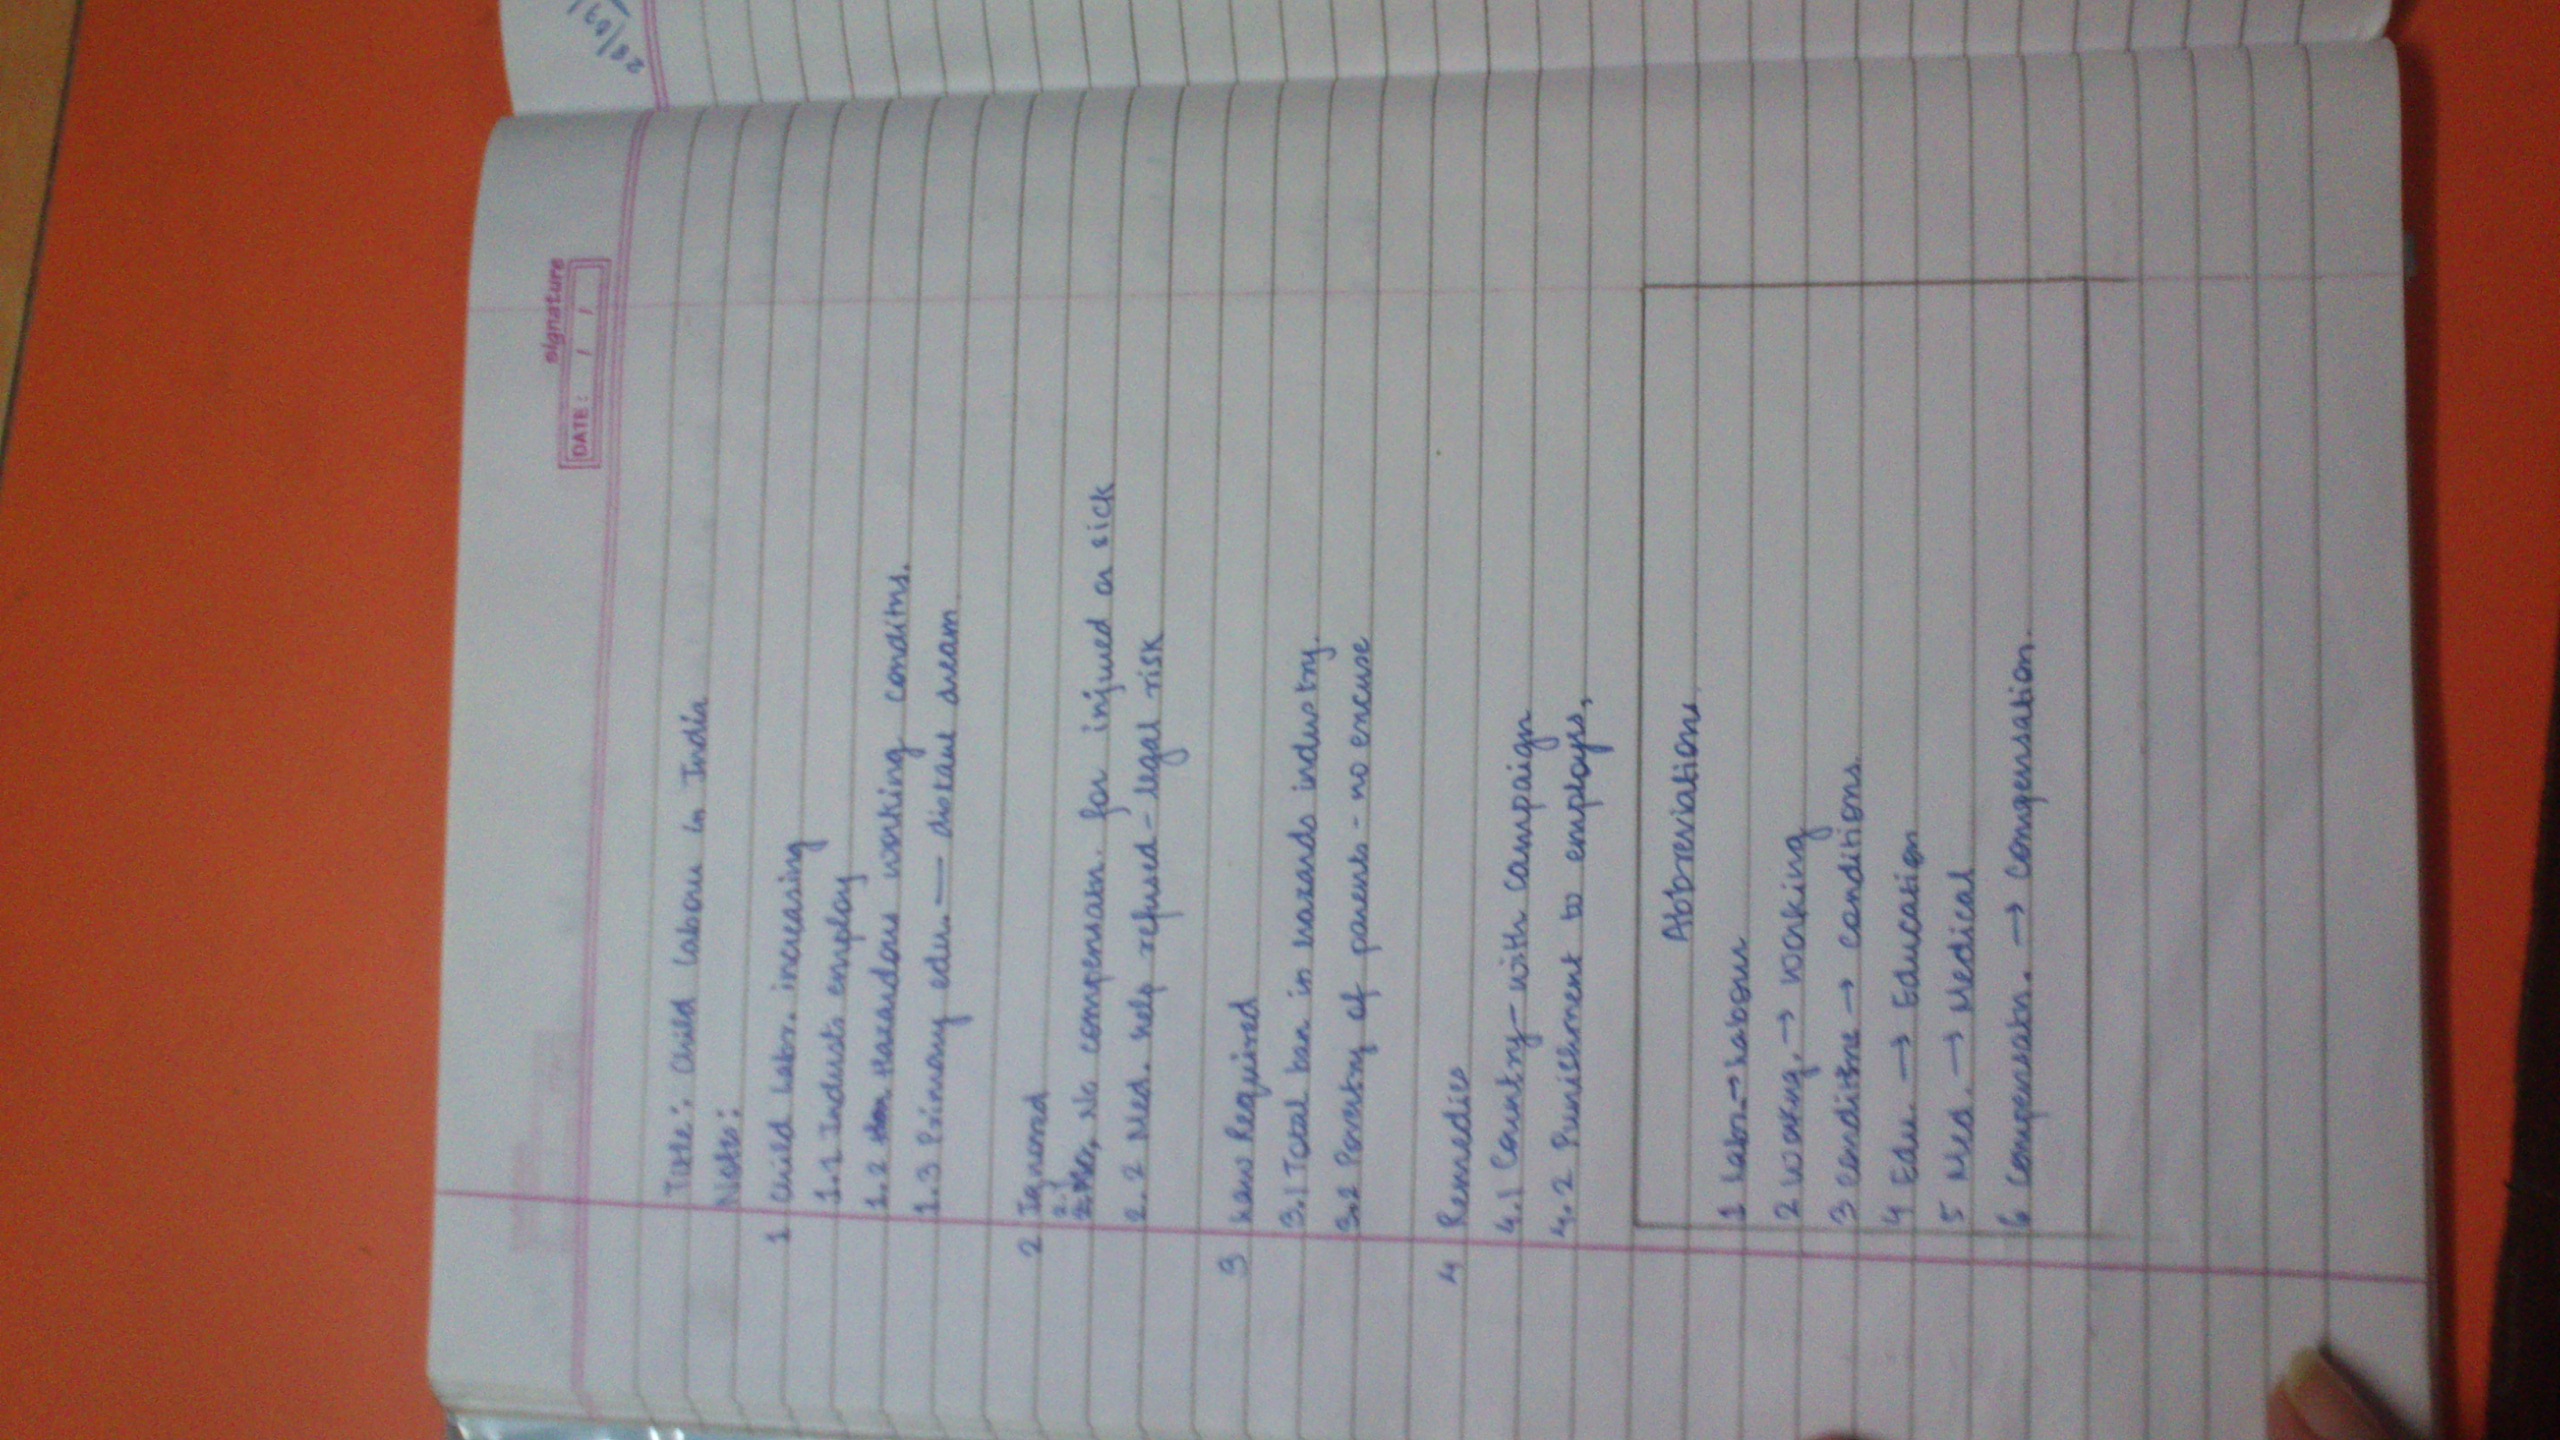 signature
DATE: / /
28/07/
Title: Child Labour in India
Notes:
1 Child Labr. increasing
1.1 Industs employ
1.2 Hazardous working conditns.
1.3 Primary edu. — distant dream.
2 Ignored
2.1 No compensatn. for injured or sick
2.2 Med. help refused - legal risk
3 Law Required
3.1 Total ban in hazards industry.
3.2 Poverty of parents - no excuse
4 Remedies
4.1 Country - with campaign
4.2 Punishment to employrs.
Abbreviations
1 Labr. → Labour
2 Workng. → Working
3 Conditns → Conditions.
4 Edu. → Education
5 Med. → Medical
6 Compensatn. → Compensation.